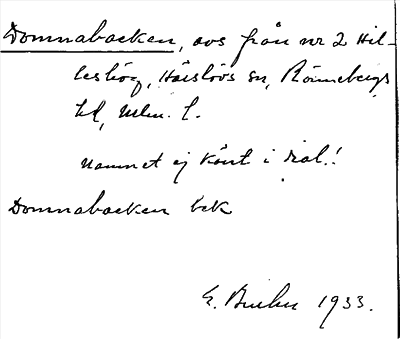 Domnabacken, avs från nr 2 Hil-
leshög, Härslövs sn, Rönnebergs
hd, Mlm. l.
Namnet ej känt i
Domnabacken bck
E. 1933.